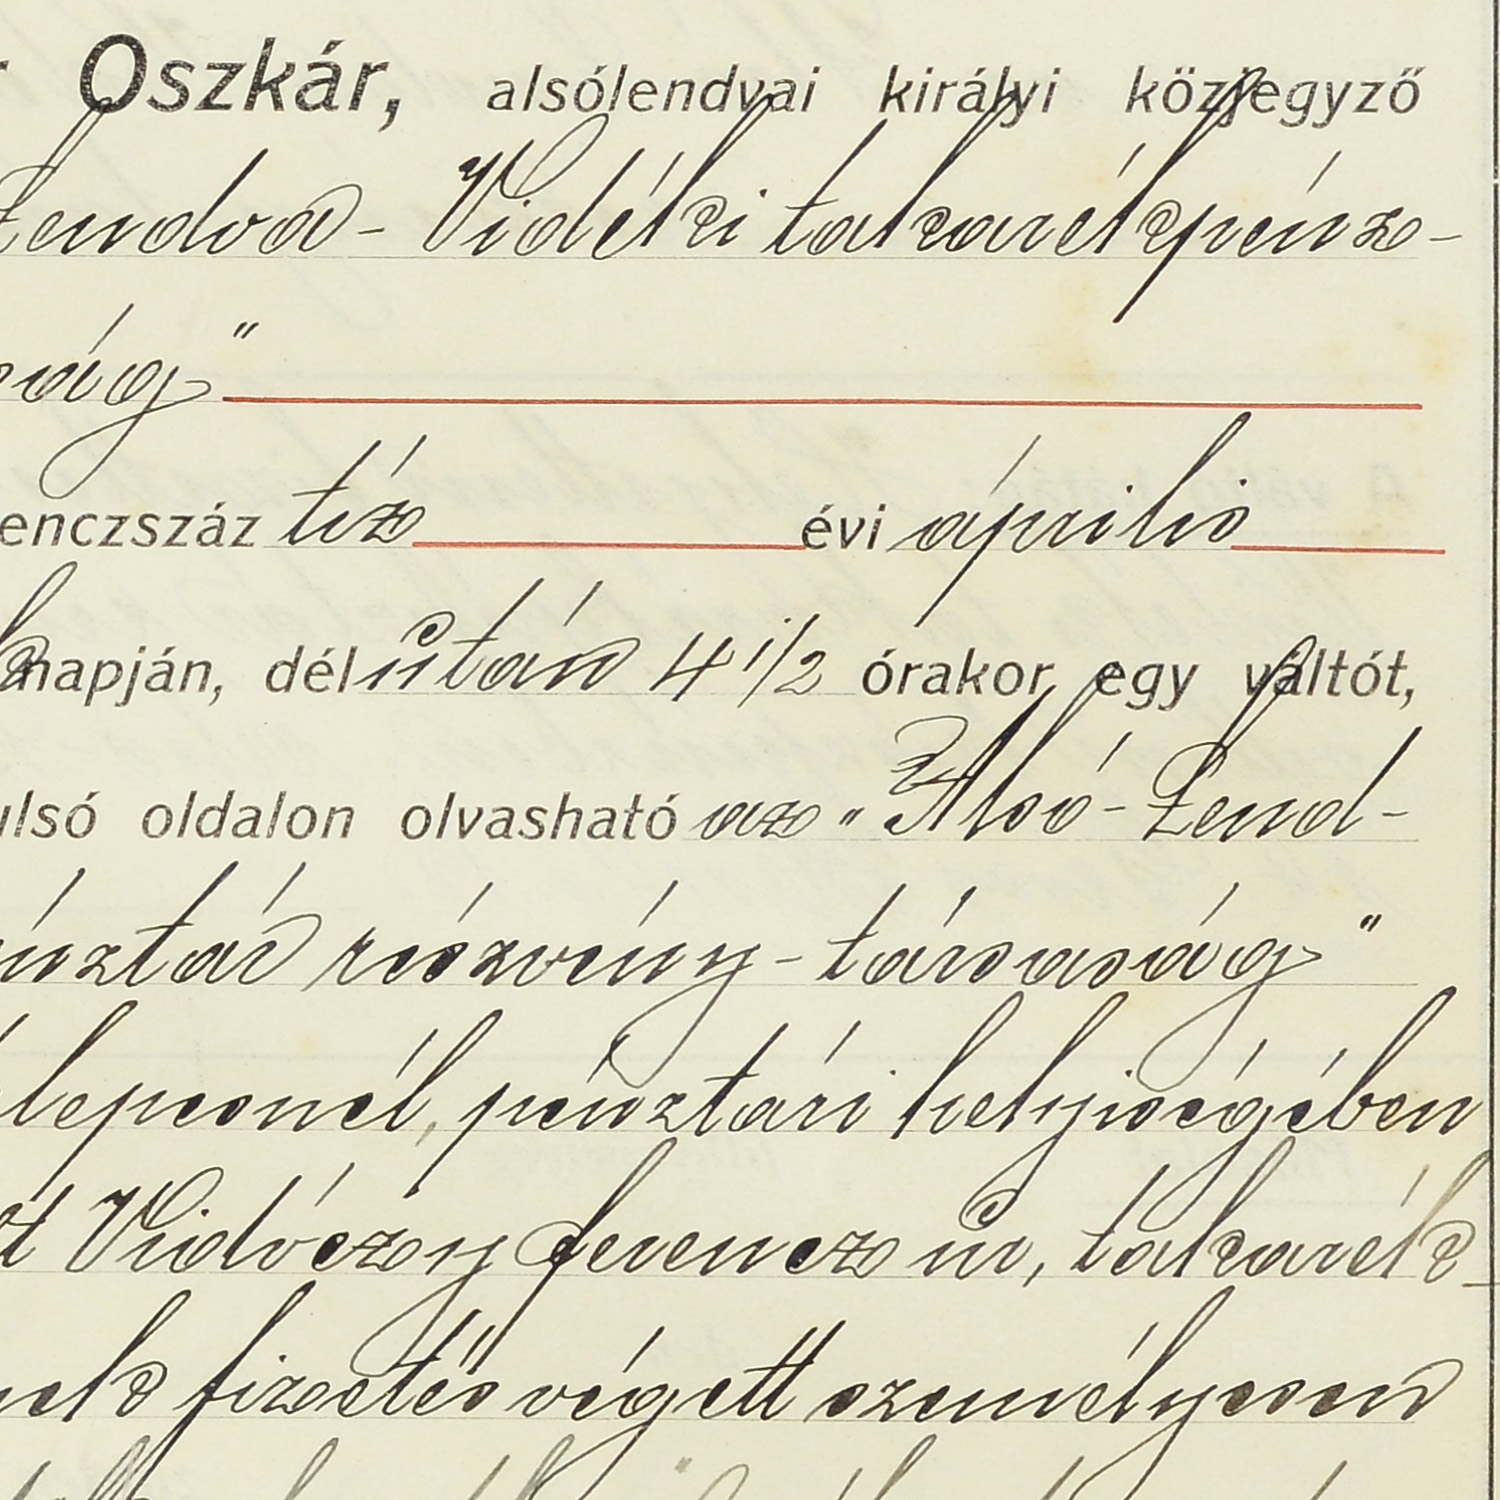 r Oszkár, alsólendvai királyi közjegyző
Lendva - Vidéki takarékpénz-
ság"
enczszáz tíz évi április
napján, délután 4 1/2 órakor egy váltót,
ulsó oldalon olvasható az „Alsó-Lend-
énztár részvény-társaság"
lepesnél, pénztári helyiségében
t Vidóczy Ferencz úr, takarék-
nek fizetés végett személyesen